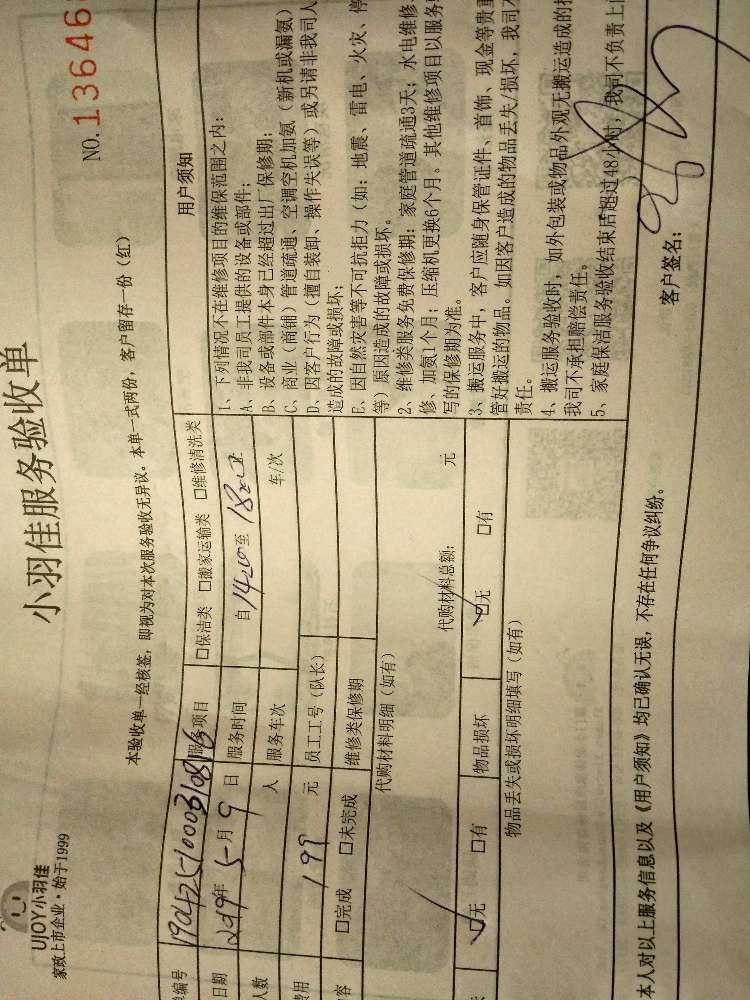 UJOY小羽佳
家政上市企业·始于1999
小羽佳服务验收单
NO.13646
本验收单一经核签，即视为对本次服务验收无异议。本单一式两份，客户留存一份（红）
编号 1904251000310816 服务项目 □保洁类 □搬家运输类 □维修清洗类
日期 2019年5月9日 服务时间 自1420至1820
人数 人 服务车次 车/次
费用 199 元 员工工号（队长）
容 □完成 □未完成 维修类保修期
代购材料明细（如有）
代购材料总额： 元
□无 □有 物品损坏 □无 □有
物品丢失或损坏明细填写（如有）
用户须知
1、下列情况不在维修项目的维保范围之内：
A、非我司员工提供的设备或部件；
B、设备或部件本身已经超过出厂保修期；
C、商业（商铺）管道疏通、空调空机加氨（新机或漏氨）
D、因客户行为（擅自装卸、操作失误等）或另请非我司人
造成的故障或损坏；
E、因自然灾害等不可抗拒力（如：地震、雷电、火灾、停
等）原因造成的故障或损坏。
2、维修类服务免费保修期：家庭管道疏通3天；水电维修
修、加氨1个月；压缩机更换6个月。其他维修项目以服务
写的保修期为准。
3、搬运服务中，客户应随身保管证件、首饰、现金等贵重
管好搬运的物品。如因客户造成的物品丢失/损坏，我司不
责任。
4、搬运服务验收时，如外包装或物品外观无搬运造成的
我司不承担赔偿责任。
5、家庭保洁服务验收结束后超过48小时，我司不负责上
本人对以上服务信息以及《用户须知》均已确认无误，不存在任何争议纠纷。
客户签名：